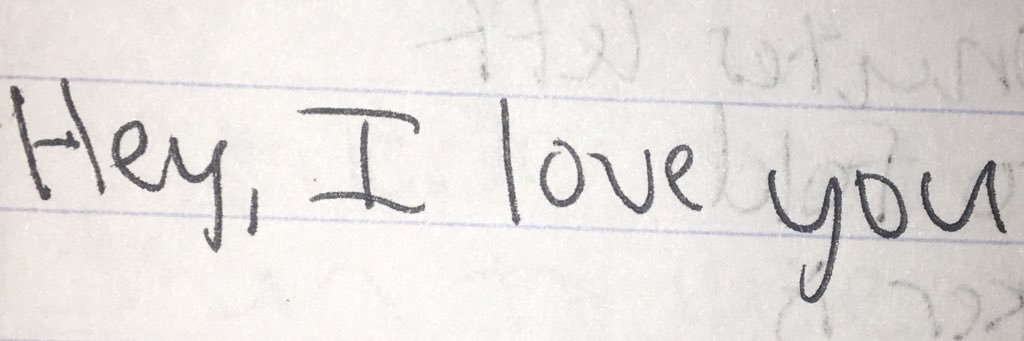 Hey, I love you